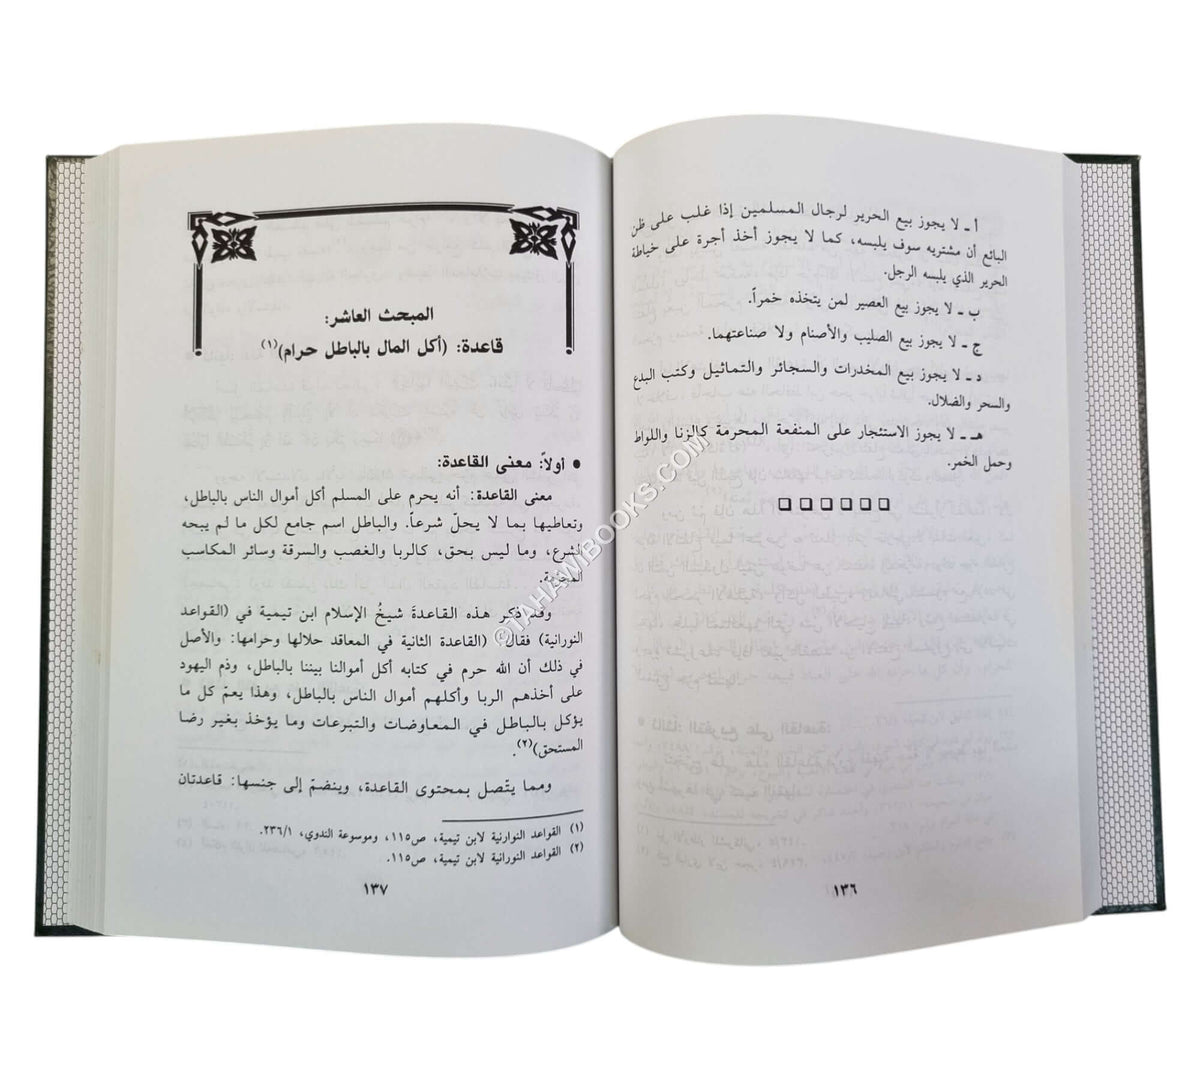 أ ـ لا يجوز بيع الحرير لرجال المسلمين إذا غلب على ظن
البائع أن مشتريه سوف يلبسه، كما لا يجوز أخذ أجرة على خياطة
الحرير الذي يلبسه الرجل.
ب ـ لا يجوز بيع العصير لمن يتخذه خمراً.
ج ـ لا يجوز بيع الصليب والأصنام ولا صناعتهما.
د ـ لا يجوز بيع المخدرات والسجائر والتماثيل وكتب البدع
والسحر والضلال.
هـ ـ لا يجوز الاستئجار على المنفعة المحرمة كالزنا واللواط
وحمل الخمر.
١٣٦
المبحث العاشر:
قاعدة: (أكل المال بالباطل حرام)(١)
• أولاً: معنى القاعدة:
معنى القاعدة: أنه يحرم على المسلم أكل أموال الناس بالباطل،
وتعاطيها بما لا يحلّ شرعاً. والباطل اسم جامع لكل ما لم يبحه
الشرع، وما ليس بحق، كالربا والغصب والسرقة وسائر المكاسب
المحرمة.
وقد ذكر هذه القاعدةَ شيخُ الإسلام ابن تيمية في (القواعد
النورانية) فقال: (القاعدة الثانية في المعاقد حلالها وحرامها: والأصل
في ذلك أن الله حرم في كتابه أكل أموالنا بيننا بالباطل، وذم اليهود
على أخذهم الربا وأكلهم أموال الناس بالباطل، وهذا يعمّ كل ما
يؤكل بالباطل في المعاوضات والتبرعات وما يؤخذ بغير رضا
المستحق)(٢).
ومما يتّصل بمحتوى القاعدة، وينضمّ إلى جنسها: قاعدتان
(١) القواعد النوارنية لابن تيمية، ص١١٥، وموسوعة الندوي، ٢٣٦/١.
(٢) القواعد النورانية لابن تيمية، ص١١٥.
١٣٧
©TAHAWIBOOKS.COM